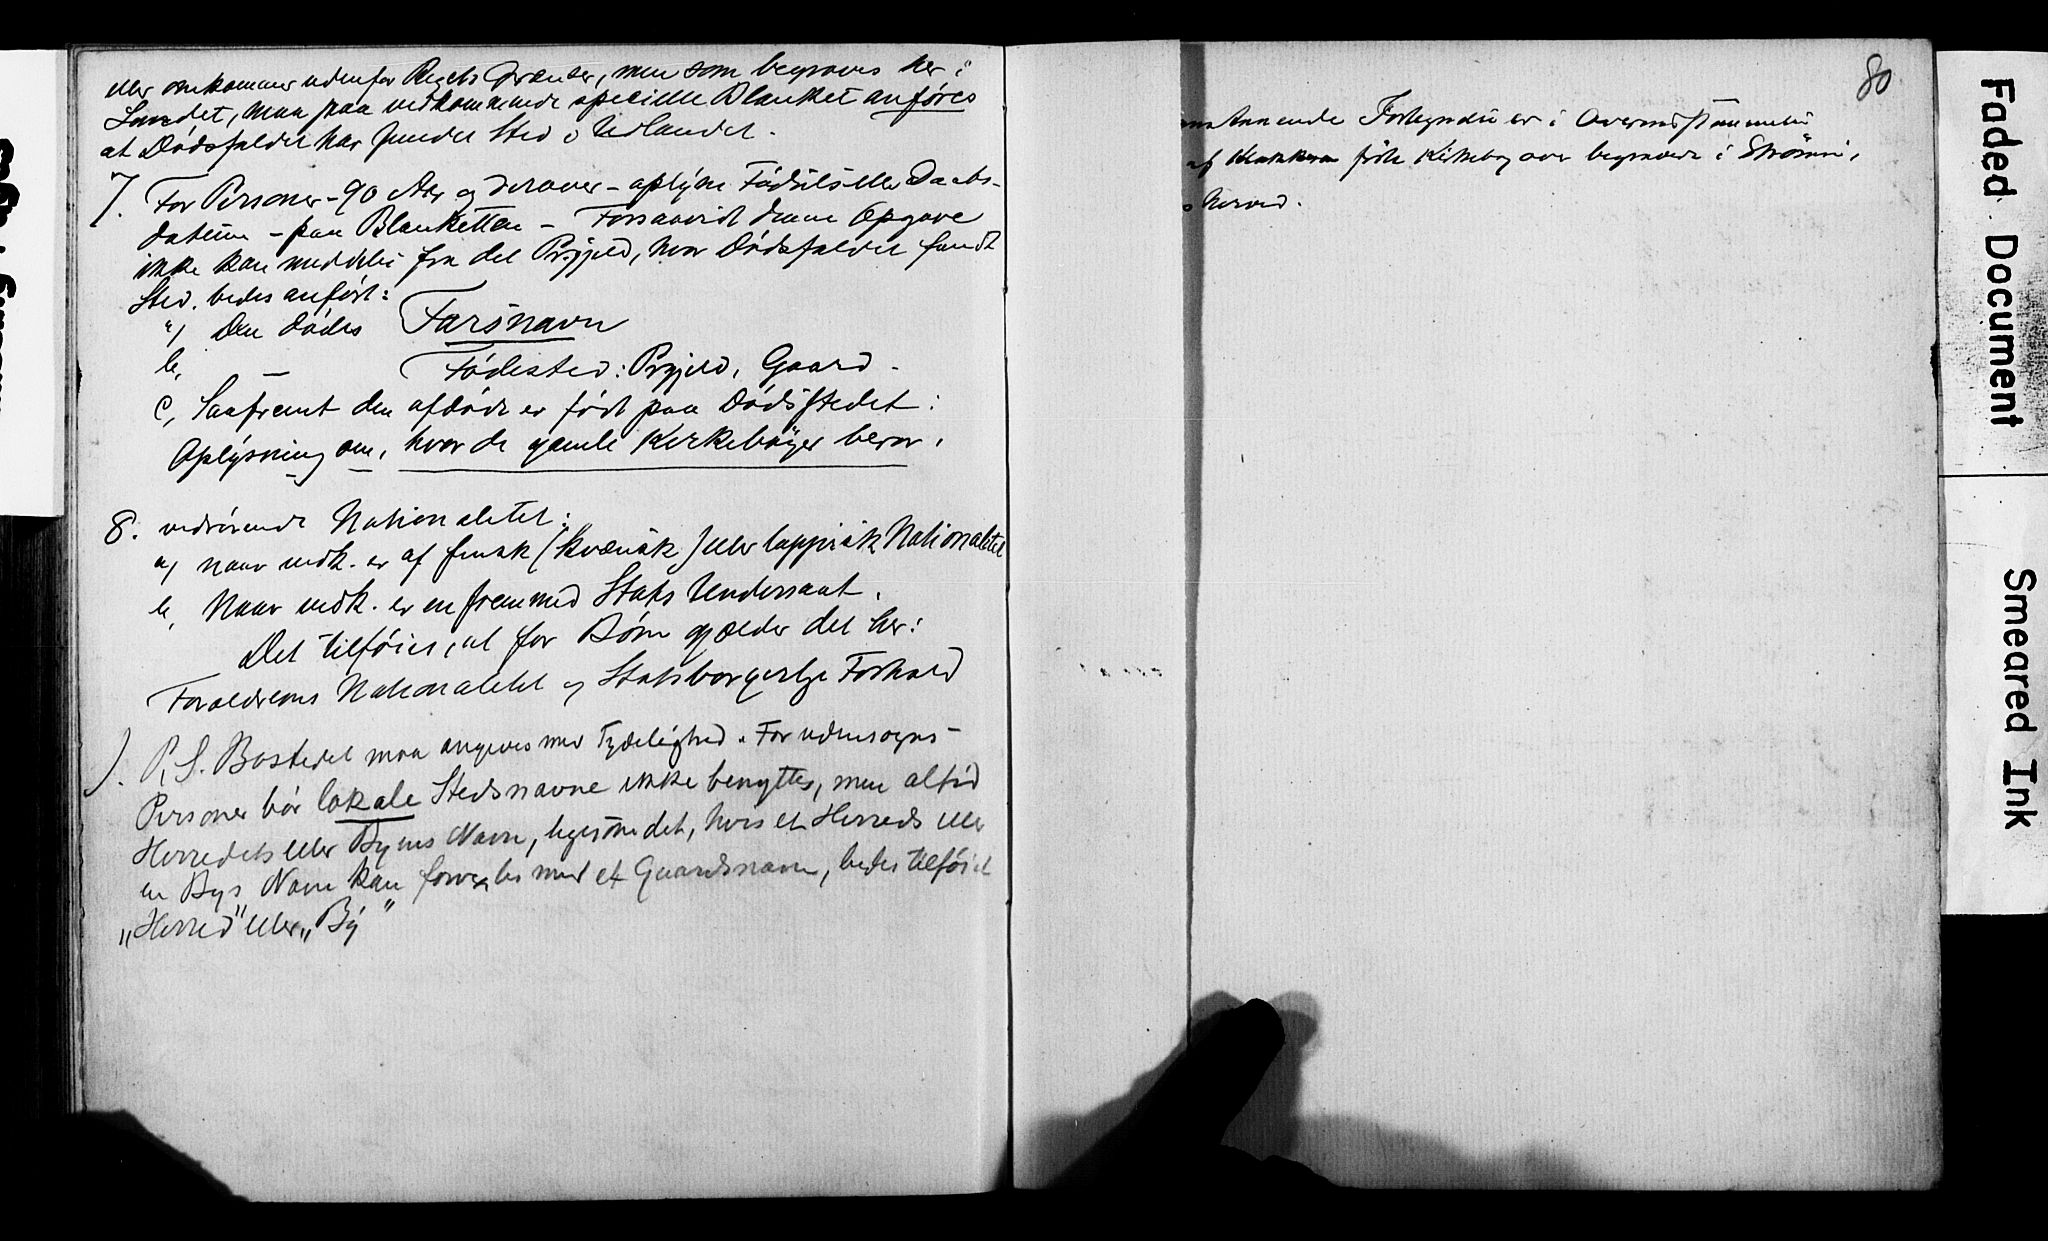 eller omkommer udenfor Rigets Grænser, men som begraves her i
Landet, maa paa vedkommende specielle Blanket anføres
at Dødsfaldet har fundet Sted i Udlandet.
7. For Personer - 90 Aar og derover - oplyse Fødsels eller Daabs-
datum - paa Blanketten - Forsaavidt denne Opgave
ikke kan meddeles fra det Prgjeld, hvor Dødsfaldet fandt
Sted, bedes anført:
a) Den dødes Farsnavn
b, — Fødested: Prgjeld, Gaard.
c, Saafremt den afdøde er født paa Dødsstedet:
Oplysning om, hvor de gamle Kirkebøger beror.
8. vedrørende Nationalitet:
a) naar vedk. er af finsk (kvænsk) eller lappisk Nationalitet
b, Naar vedk. er en fremmed Stats Undersaat.
Det tilføies, at for Børn gjælder det her:
Forældrenes Nationalitet og Statsborgerlige Forhold
). P.S. Bostedet maa angives med Tydelighed. For udensogns-
Personer bør lokale Stedsnavne ikke benyttes, men altid
Herredets eller Byens Navn, ligesom det, hvis et Herreds eller
en Bys Navn kan forvexles med et Gaardsnavn, bedes tilføiet
„Herred" eller „By"
80
Fortegnelse er i Overensstemmelse
af Klokkeren førte Kirkebog over begravede i
Faded Document
Smeared Ink